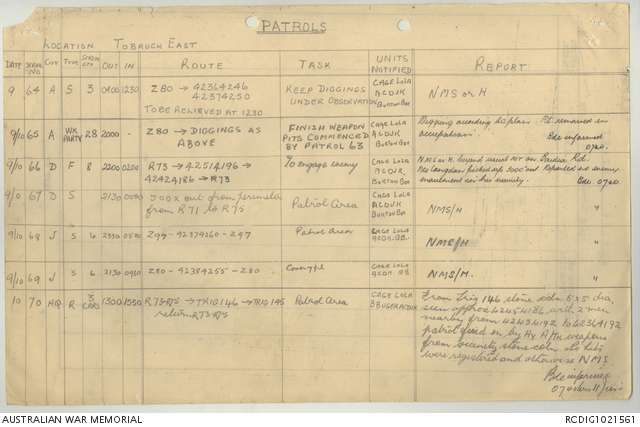 PATROLS
LOCATION TOBRUCH EAST
DATE SERIAL NO COY TYPE STRENGTH OUT IN ROUTE TASK UNITS NOTIFIED REPORT
9 64 A S 3 0400 1230 Z80 → 42364246
42374250
TO BE RELIEVED AT 1230
KEEP DIGGINGS
UNDER OBSERVATION
CAGE LOLA
ACDUK
BURTON BOX
NMS or H
9/10 65 A WK PARTY 28 2000 - Z80 → DIGGINGS AS
ABOVE
FINISH WEAPON
PITS COMMENCED
BY PATROL 63
CAGE LOLA
ACDUK
BURTON BOX
Digging according to plan. Pl. remained in
occupation.
Bde informed
0720.
9/10 66 D F 8 2200 0200 R73 → 42514196 →
42424186 → R73
To engage enemy
CAGE LOLA
ACDUK
BURTON BOX
NMS or H beyond usual
enemy
Bde. 0720
9/10 67 D S 2130 500x out from perimeter
from R71 to R75
Patrol Area
CAGE LOLA
ACDUK
BURTON BOX
NMS/H
"
9/10 68 J S 6 2330 Z97 - 42374260 - Z97
Patrol Area
CAGE LOLA
NMS/H
"
9/10 69 J S 6 2130 Z80 - 42384255 - Z80
CAGE LOLA
NMS/H.
"
10 70 R 3 CARS 1300 1550 R73-R75 → TRIG 146 → TRIG 145
return R73-R75
Patrol Area
CAGE LOLA
From Trig 146 stone 5 x 5
seen approx 42454186 with 2 men
nearby from 42434192 to 42364192
patrol fired on by Hy A/Tk weapons
from vicinity stone No hits
were registered and otherwise NMS.
Bde informed
AUSTRALIAN WAR MEMORIAL
RCDIG1021561